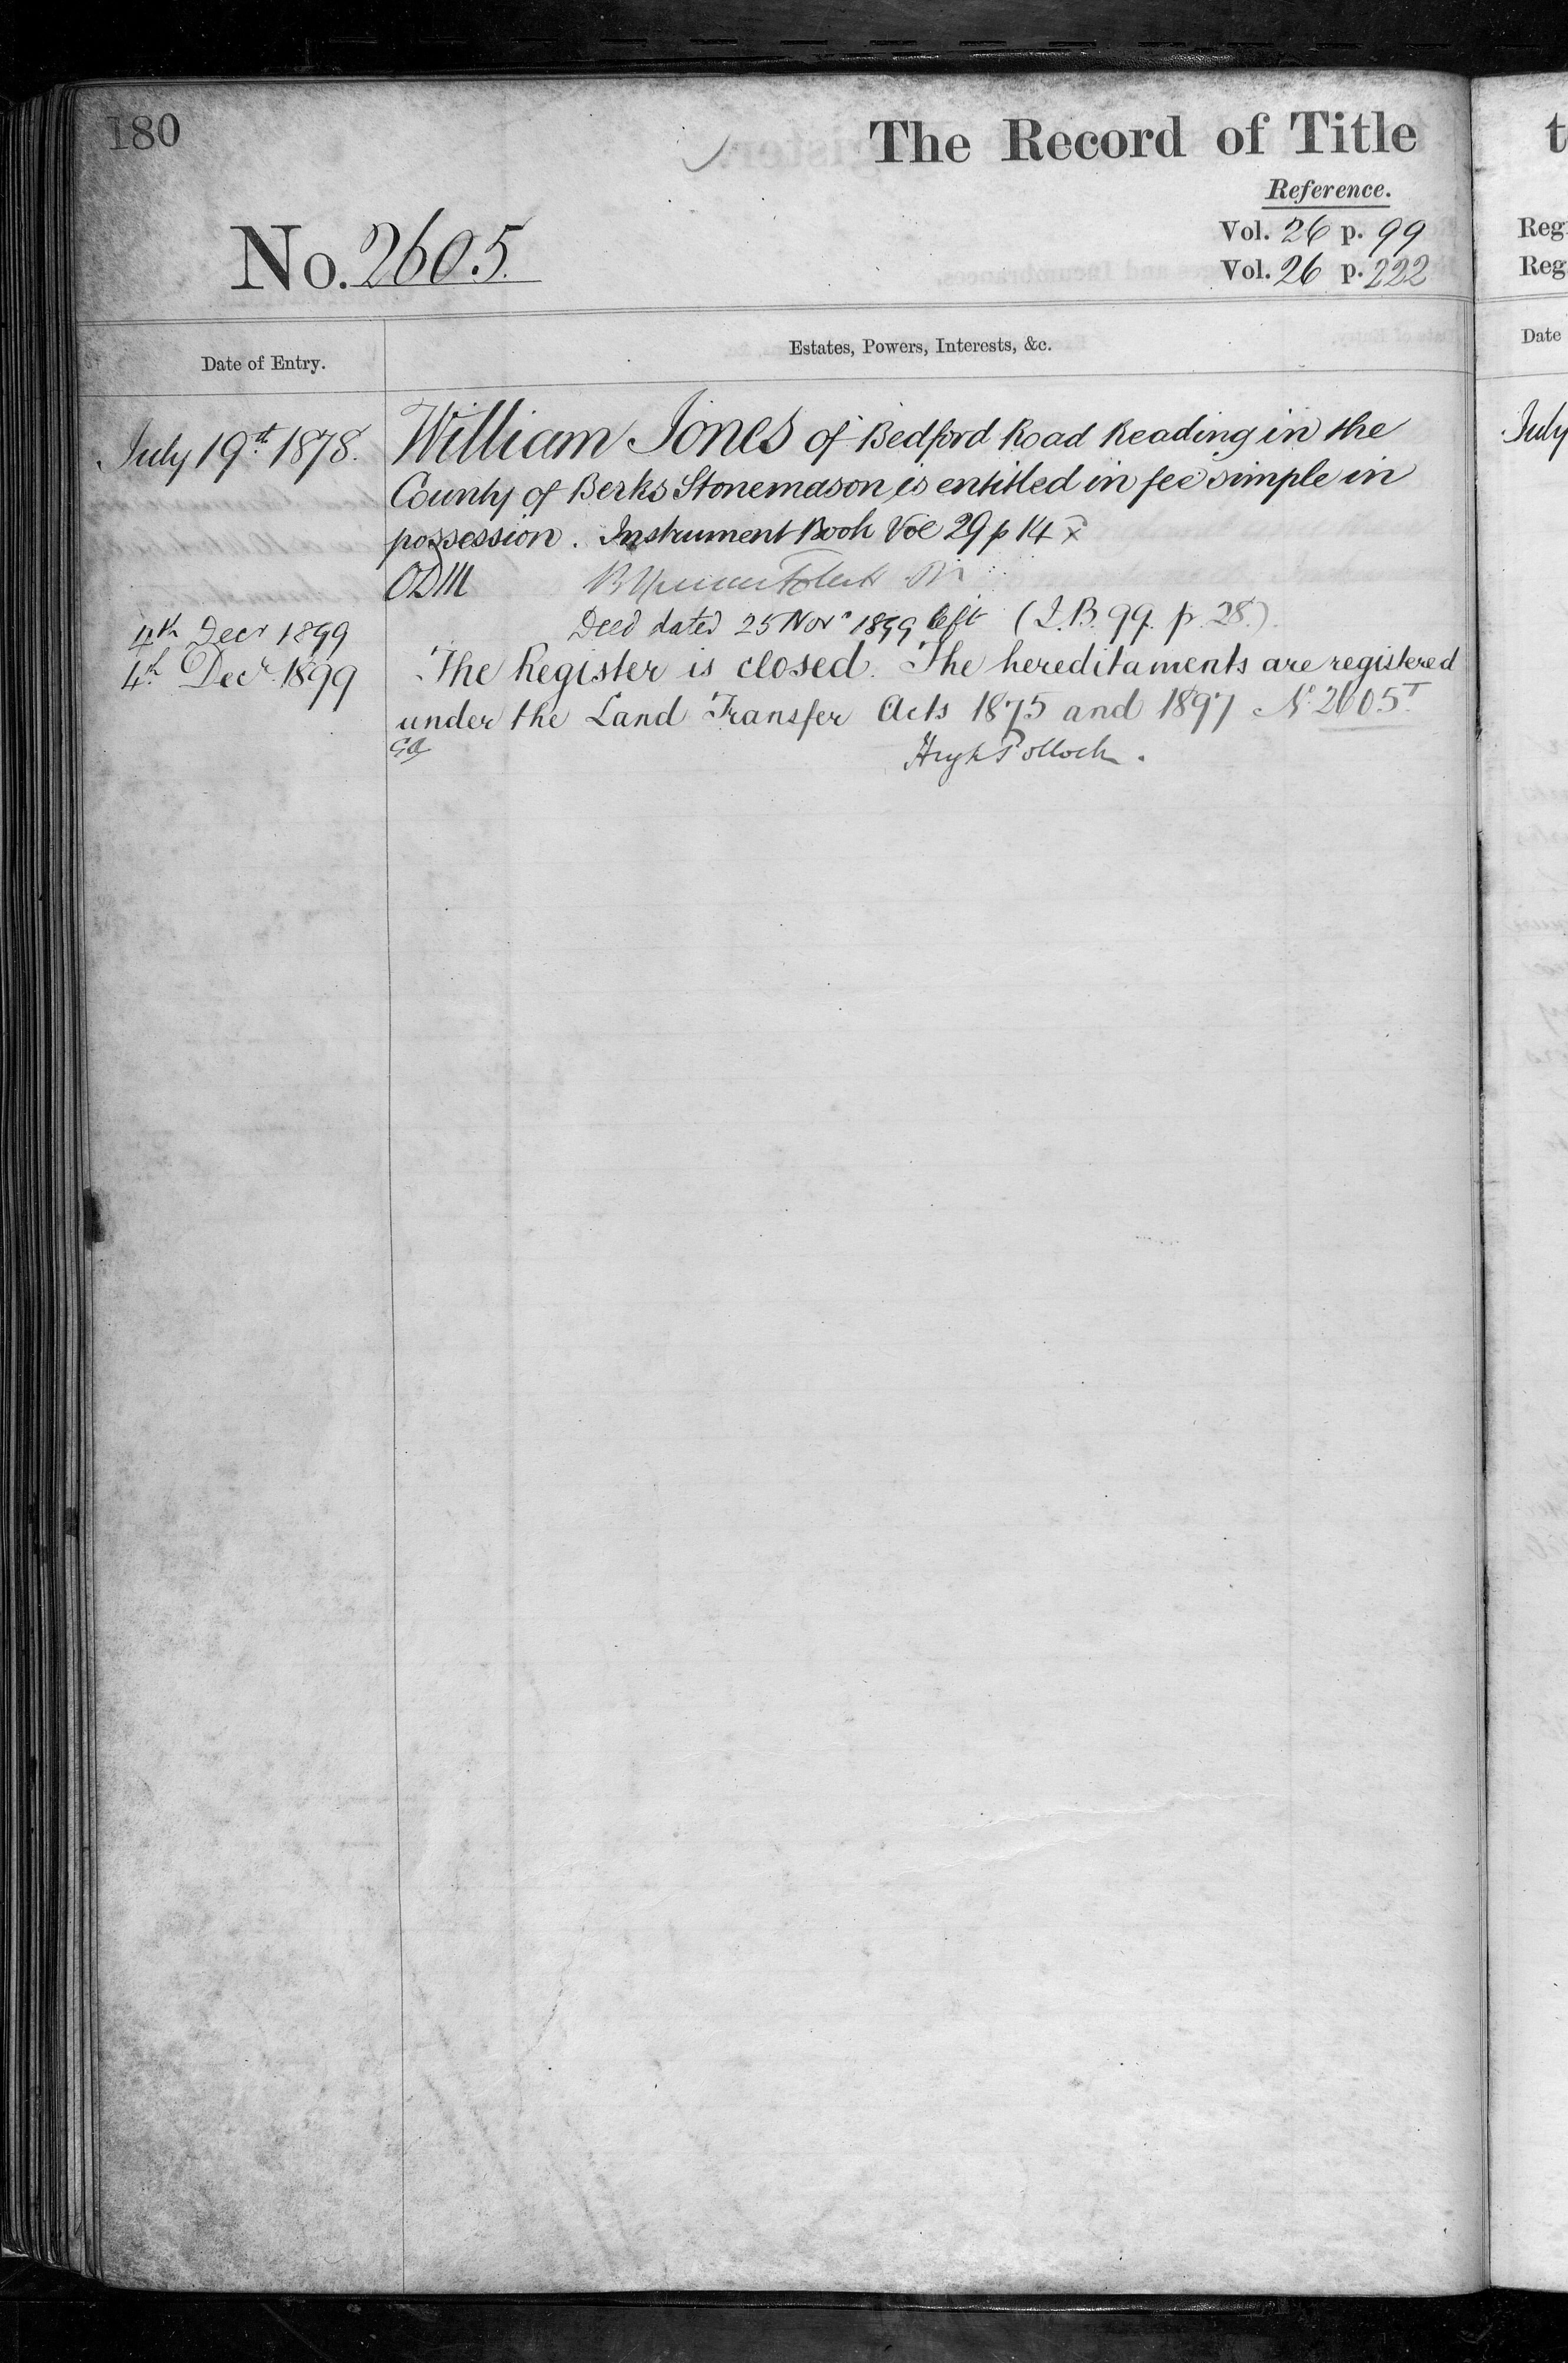 180
The Record of Title
Reference.
No. 2605.
Vol. 26 p. 99
Vol. 26 p. 222
Date of Entry.
Estates, Powers, Interests, &c.
July 19th 1878.
William Jones of Bedford Road Reading in the
County of Berks Stonemason is entitled in fee simple in
possession. Instrument Book Vol 29 p 14 x
ODM
4th Decr 1899
Deed dated 25 Novr 1899 left (I.B. 99. p. 28.)
4th Decr 1899
The Register is closed. The hereditaments are registered
under the Land Transfer Acts 1875 and 1897 No 2605T
Hugh Pollock.
t
Reg
Reg
Date
July